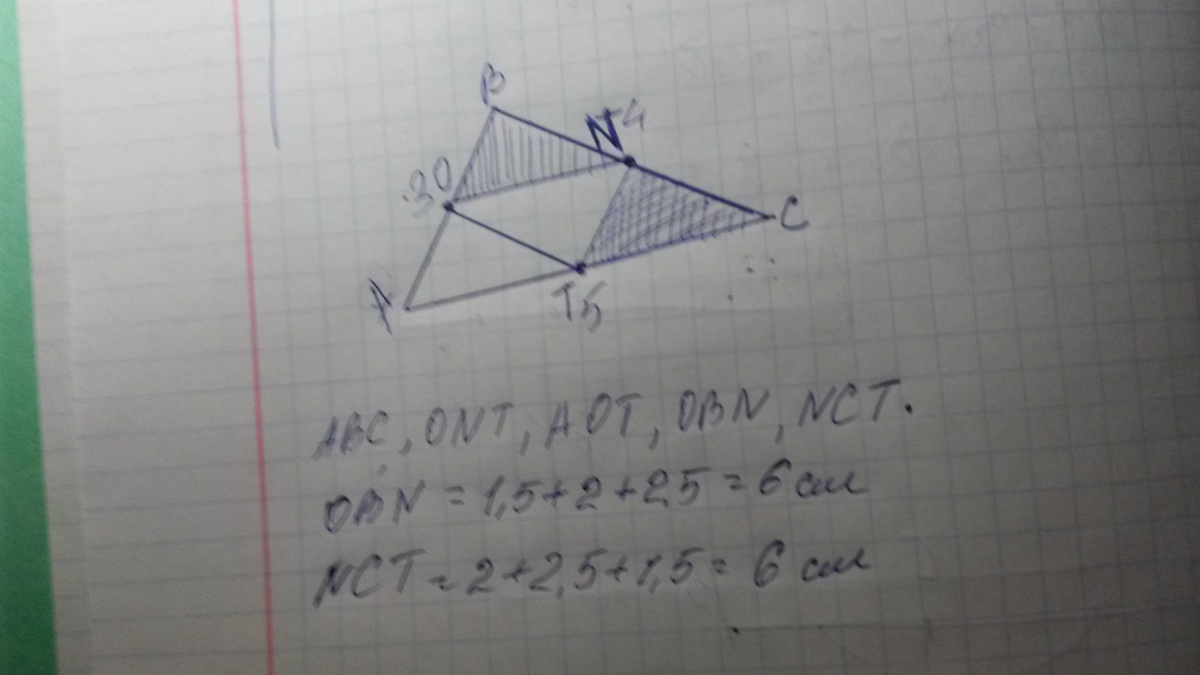 B
N 4
30
C
A
T5
ABC, ONT, AOT, OBN, NCT.
OBN = 1,5+2+2,5 = 6 см
NCT = 2+2,5+1,5 = 6 см